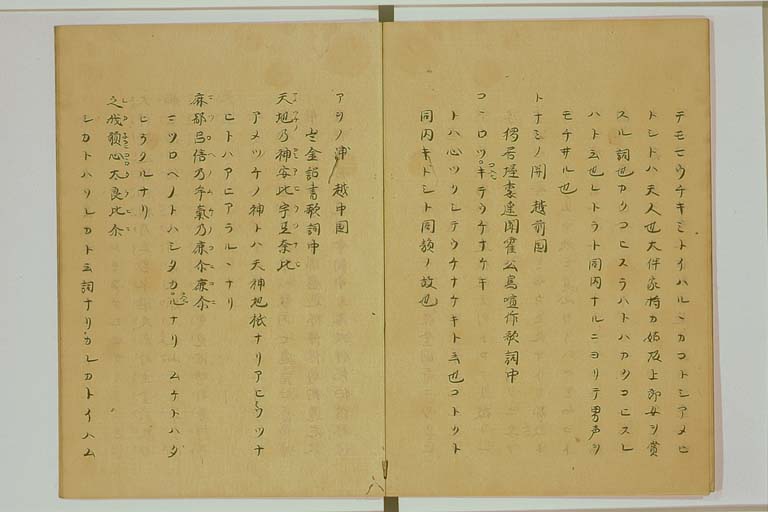 テモセウチキミトイハルヽカコトシアメヒ
トシトハ天人也大伴家持カ姑坂上郎女ヲ賞
スル詞也カクコヒスラハトハカクコヒスレ
ハト云也レトラト同内ナルニヨリテ男声ヲ
モチヰル也
トナミノ関 越前国
獨居幄裏遙聞霍公鳥喧作歌詞中
コヽロツキテウチナケキ
トハ心ツクシテウチナケキト云也コトリト
同内キトシト同韻ノ故也
アヲノ浦 越中国
出金詔書歌詞中
天地乃神安比宇豆奈比
アメツチノ神トハ天神地祇ナリアヒウツナ
ヒトハアヒアラハヽナリ
麻都呂倍乃牟氣乃麻尓麻尓
マツロヘノトハシタカヘルナリムケトハタ
ヒラクルナリ
之我願心太良比尓
シカトハソレカト云詞ナリカレカトイハム